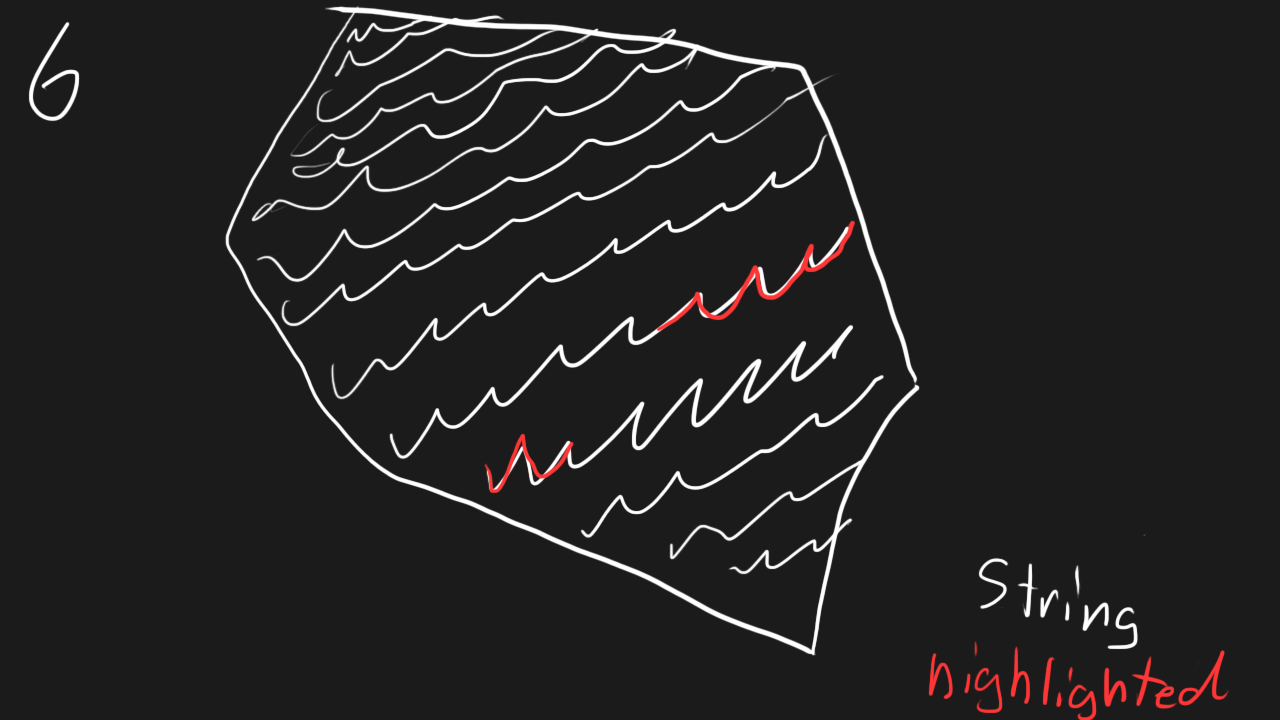 6
String
highlighted